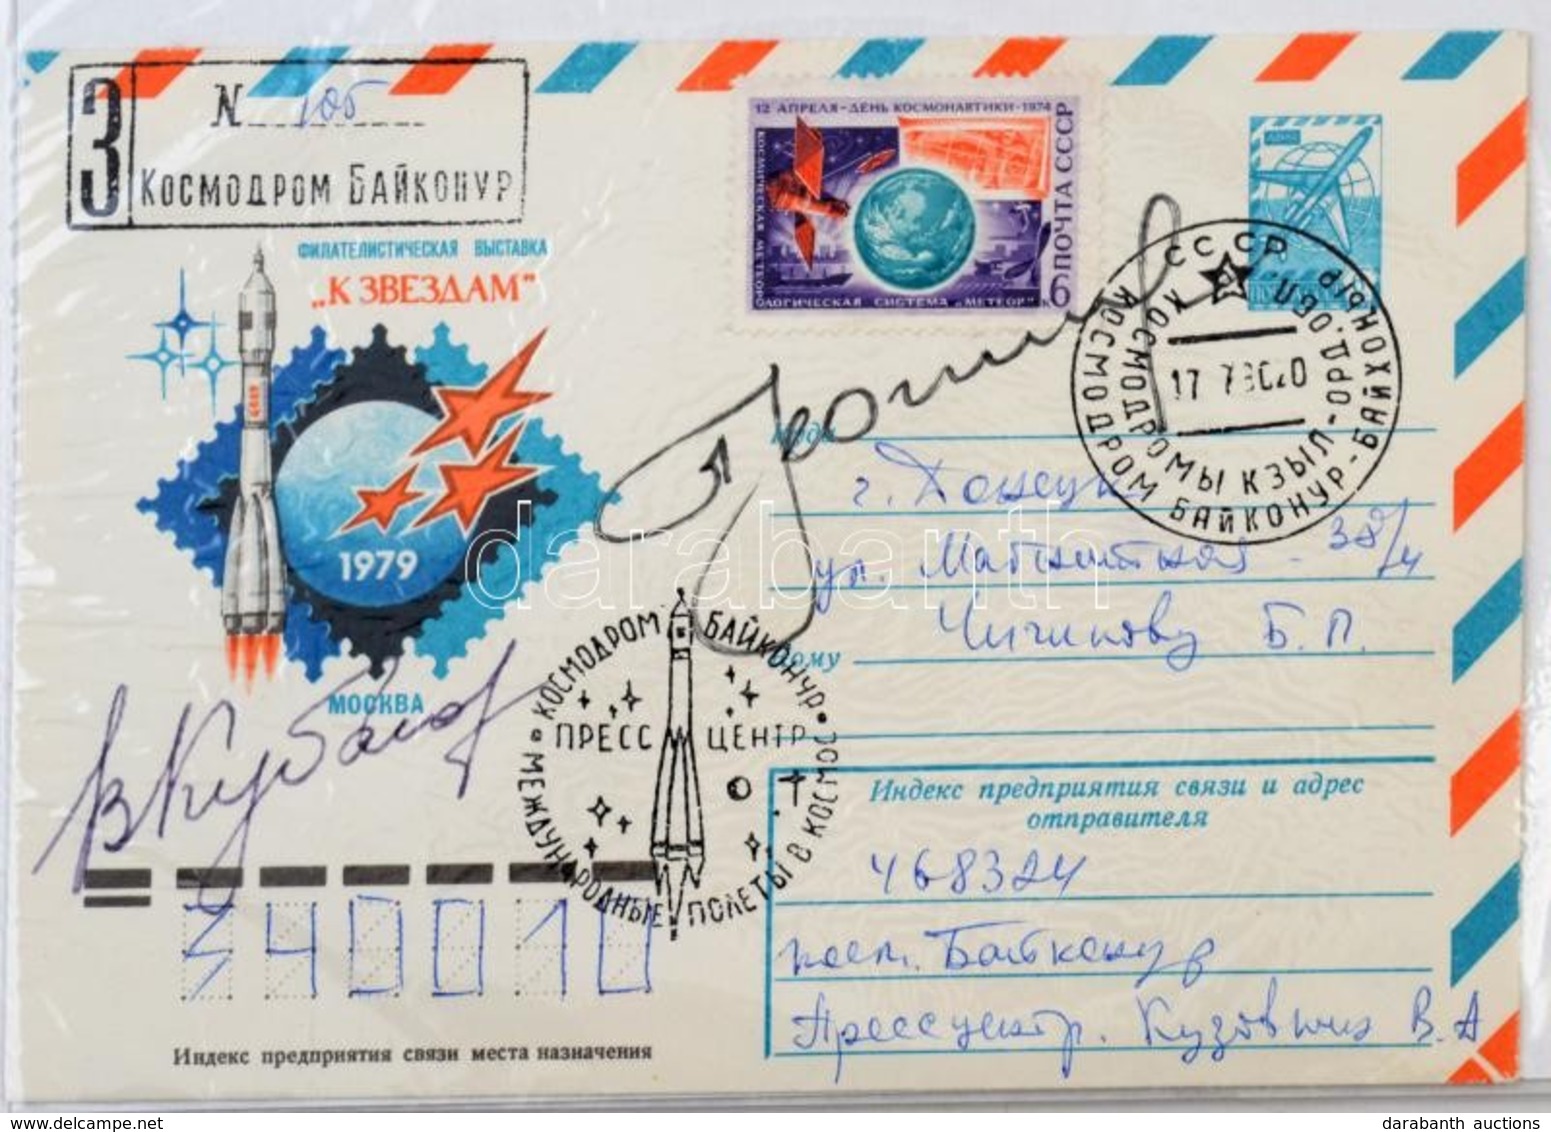 З
N 105
Космодром Байконур
ФИЛАТЕЛИСТИЧЕСКАЯ ВЫСТАВКА
„К ЗВЕЗДАМ”
СССР
1979
МОСКВА
12 АПРЕЛЯ - ДЕНЬ КОСМОНАВТИКИ - 1974
КОСМИЧЕСКАЯ МЕТЕОРОЛОГИЧЕСКАЯ СИСТЕМА „МЕТЕОР”
6 ПОЧТА СССР
АВИА
СССР
КОСМОДРОМ БАЙКОНУР - БАЙКОНЫР
КОСМОДРОМЫ КЗЫЛ-ОРД. ОБЛ.
17 7 80 20
Куда
г. Донецк
ул. Магнитная - 38/4
Чигинову Б.П.
Кому
darabanth
ВКубасов
КОСМОДРОМ БАЙКОНУР
ПРЕСС ЦЕНТР
МЕЖДУНАРОДНЫЕ ПОЛЕТЫ В КОСМОС
Индекс предприятия связи и адрес
отправителя
468324
пос. Байконур
Прессцентр. Кузовкин В.А
340010
Индекс предприятия связи места назначения
darabanth auctions